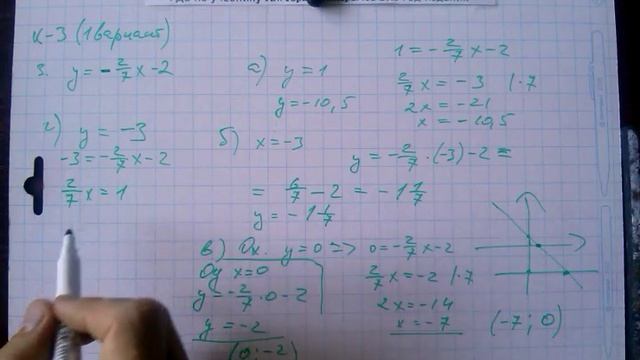 К-3 (1 вариант)
3. y = -2/7 x - 2
а) y = 1
y = -10,5
1 = -2/7 x - 2
2/7 x = -3 | ·7
2x = -21
x = -10,5
г) y = -3
-3 = -2/7 x - 2
2/7 x = 1
б) x = -3
y = -2/7 · (-3) - 2 =
= 6/7 - 2 = -1 1/7
y = -1 1/7
в) Ox. y = 0 => 0 = -2/7 x - 2
2/7 x = -2 | ·7
2x = -14
x = -7
(-7; 0)
Oy x = 0
y = -2/7 · 0 - 2
y = -2
(0; -2)